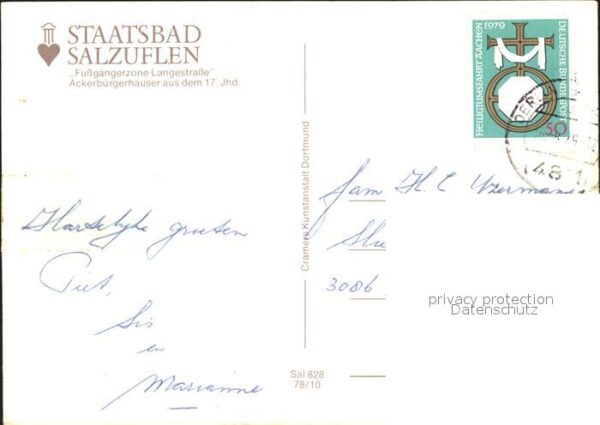 STAATSBAD
SALZUFLEN
„Fußgängerzone Langestraße"
Ackerbürgerhäuser aus dem 17. Jhd.
1979
HEILIGTUMSFAHRT AACHEN
DEUTSCHE BUNDESPOST
50
48
Hartelijke groeten
Piet,
Sis
en
Marianne
Cramers Kunstanstalt Dortmund
Fam H. C
3086
privacy protection
Datenschutz
Sal 828
78/10